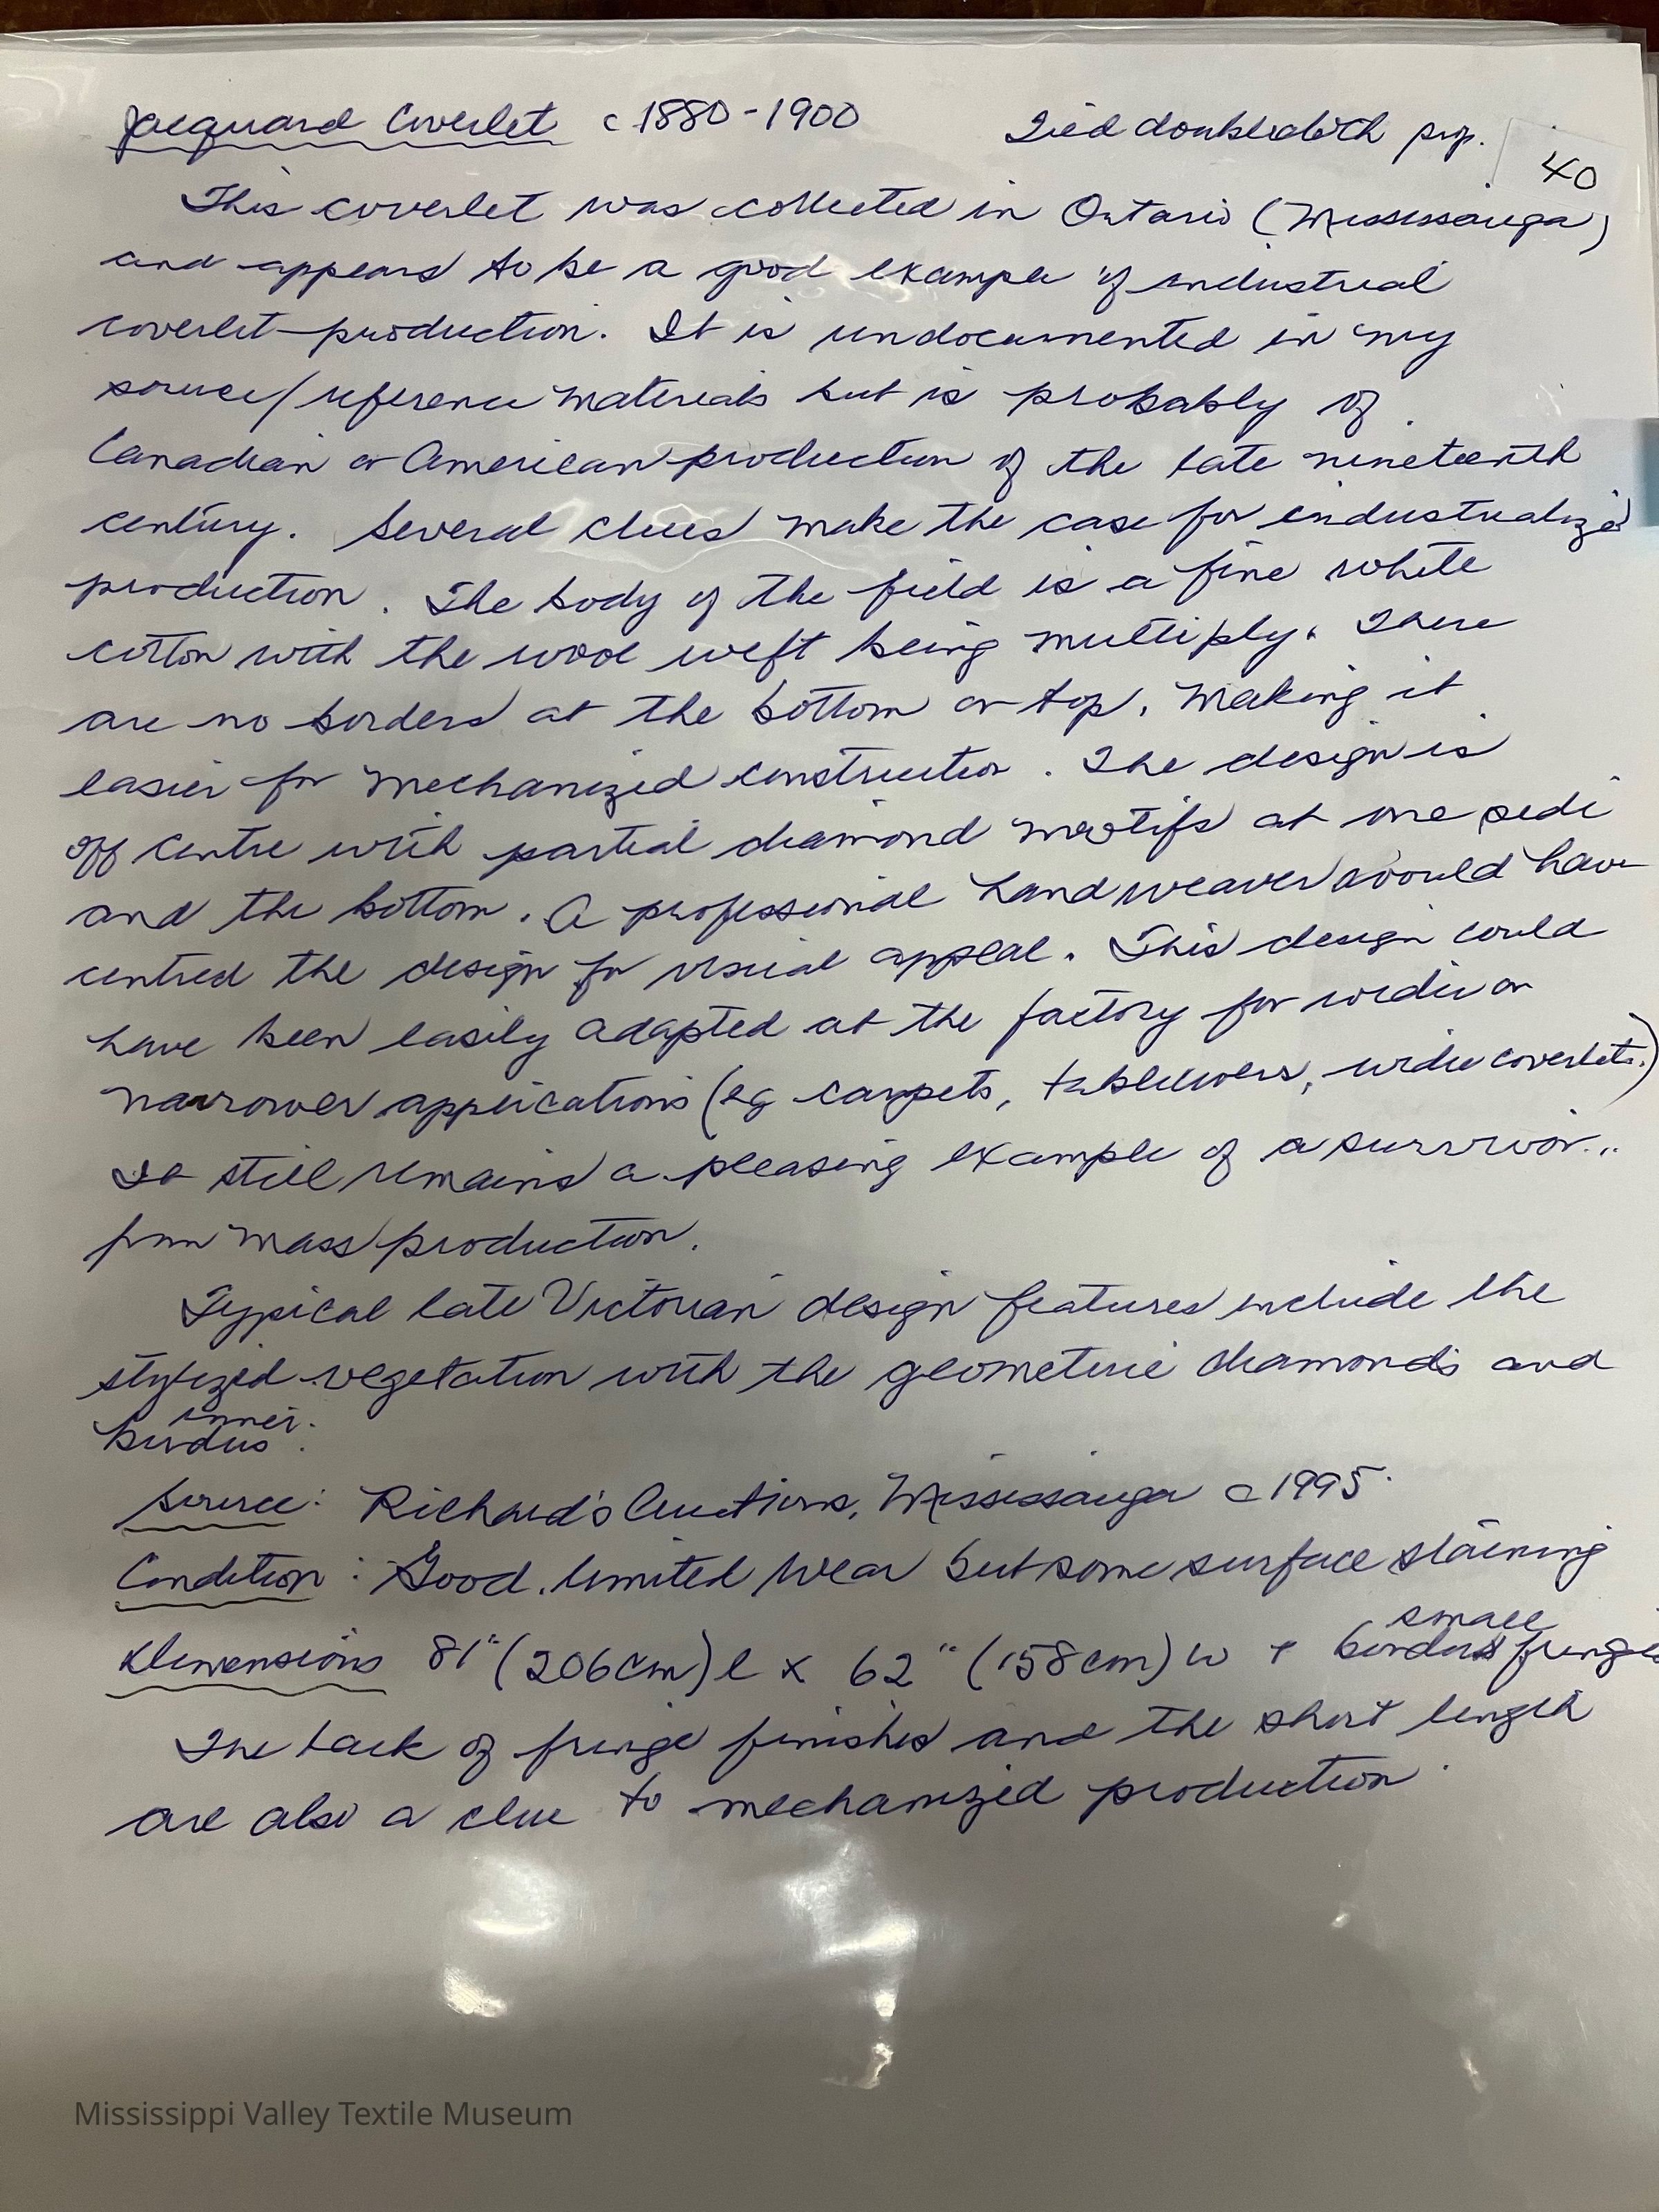 Jacquard Coverlet c 1880-1900 Tied doublecloth prop. 40
This coverlet was collected in Ontario (Mississauga)
and appears to be a good example of industrial
coverlet production. It is undocumented in my
source/reference materials but is probably of
Canadian or American production of the late nineteenth
century. Several clues make the case for industrialized
production. The body of the field is a fine white
cotton with the wool weft being multiply. There
are no borders at the bottom or top, making it
easier for mechanized construction. The design is
off centre with partial diamond motifs at one side
and the bottom. A professional handweaver would have
centred the design for visual appeal. This design could
have been easily adapted at the factory for wider or
narrower applications (eg carpets, tablecovers, wider coverlets.)
It still remains a pleasing example of a survivor...
from mass production.
Typical late Victorian design features include the
stylized vegetation with the geometric diamonds and
inner
borders.
Source: Richard's Auctions, Mississauga c 1995.
Condition: Good. limited wear but some surface staining
small
Dimensions 81" (206cm) l x 62" (158cm) w + borders fringe
The lack of fringe finishes and the short length
are also a clue to mechanized production.
Mississippi Valley Textile Museum